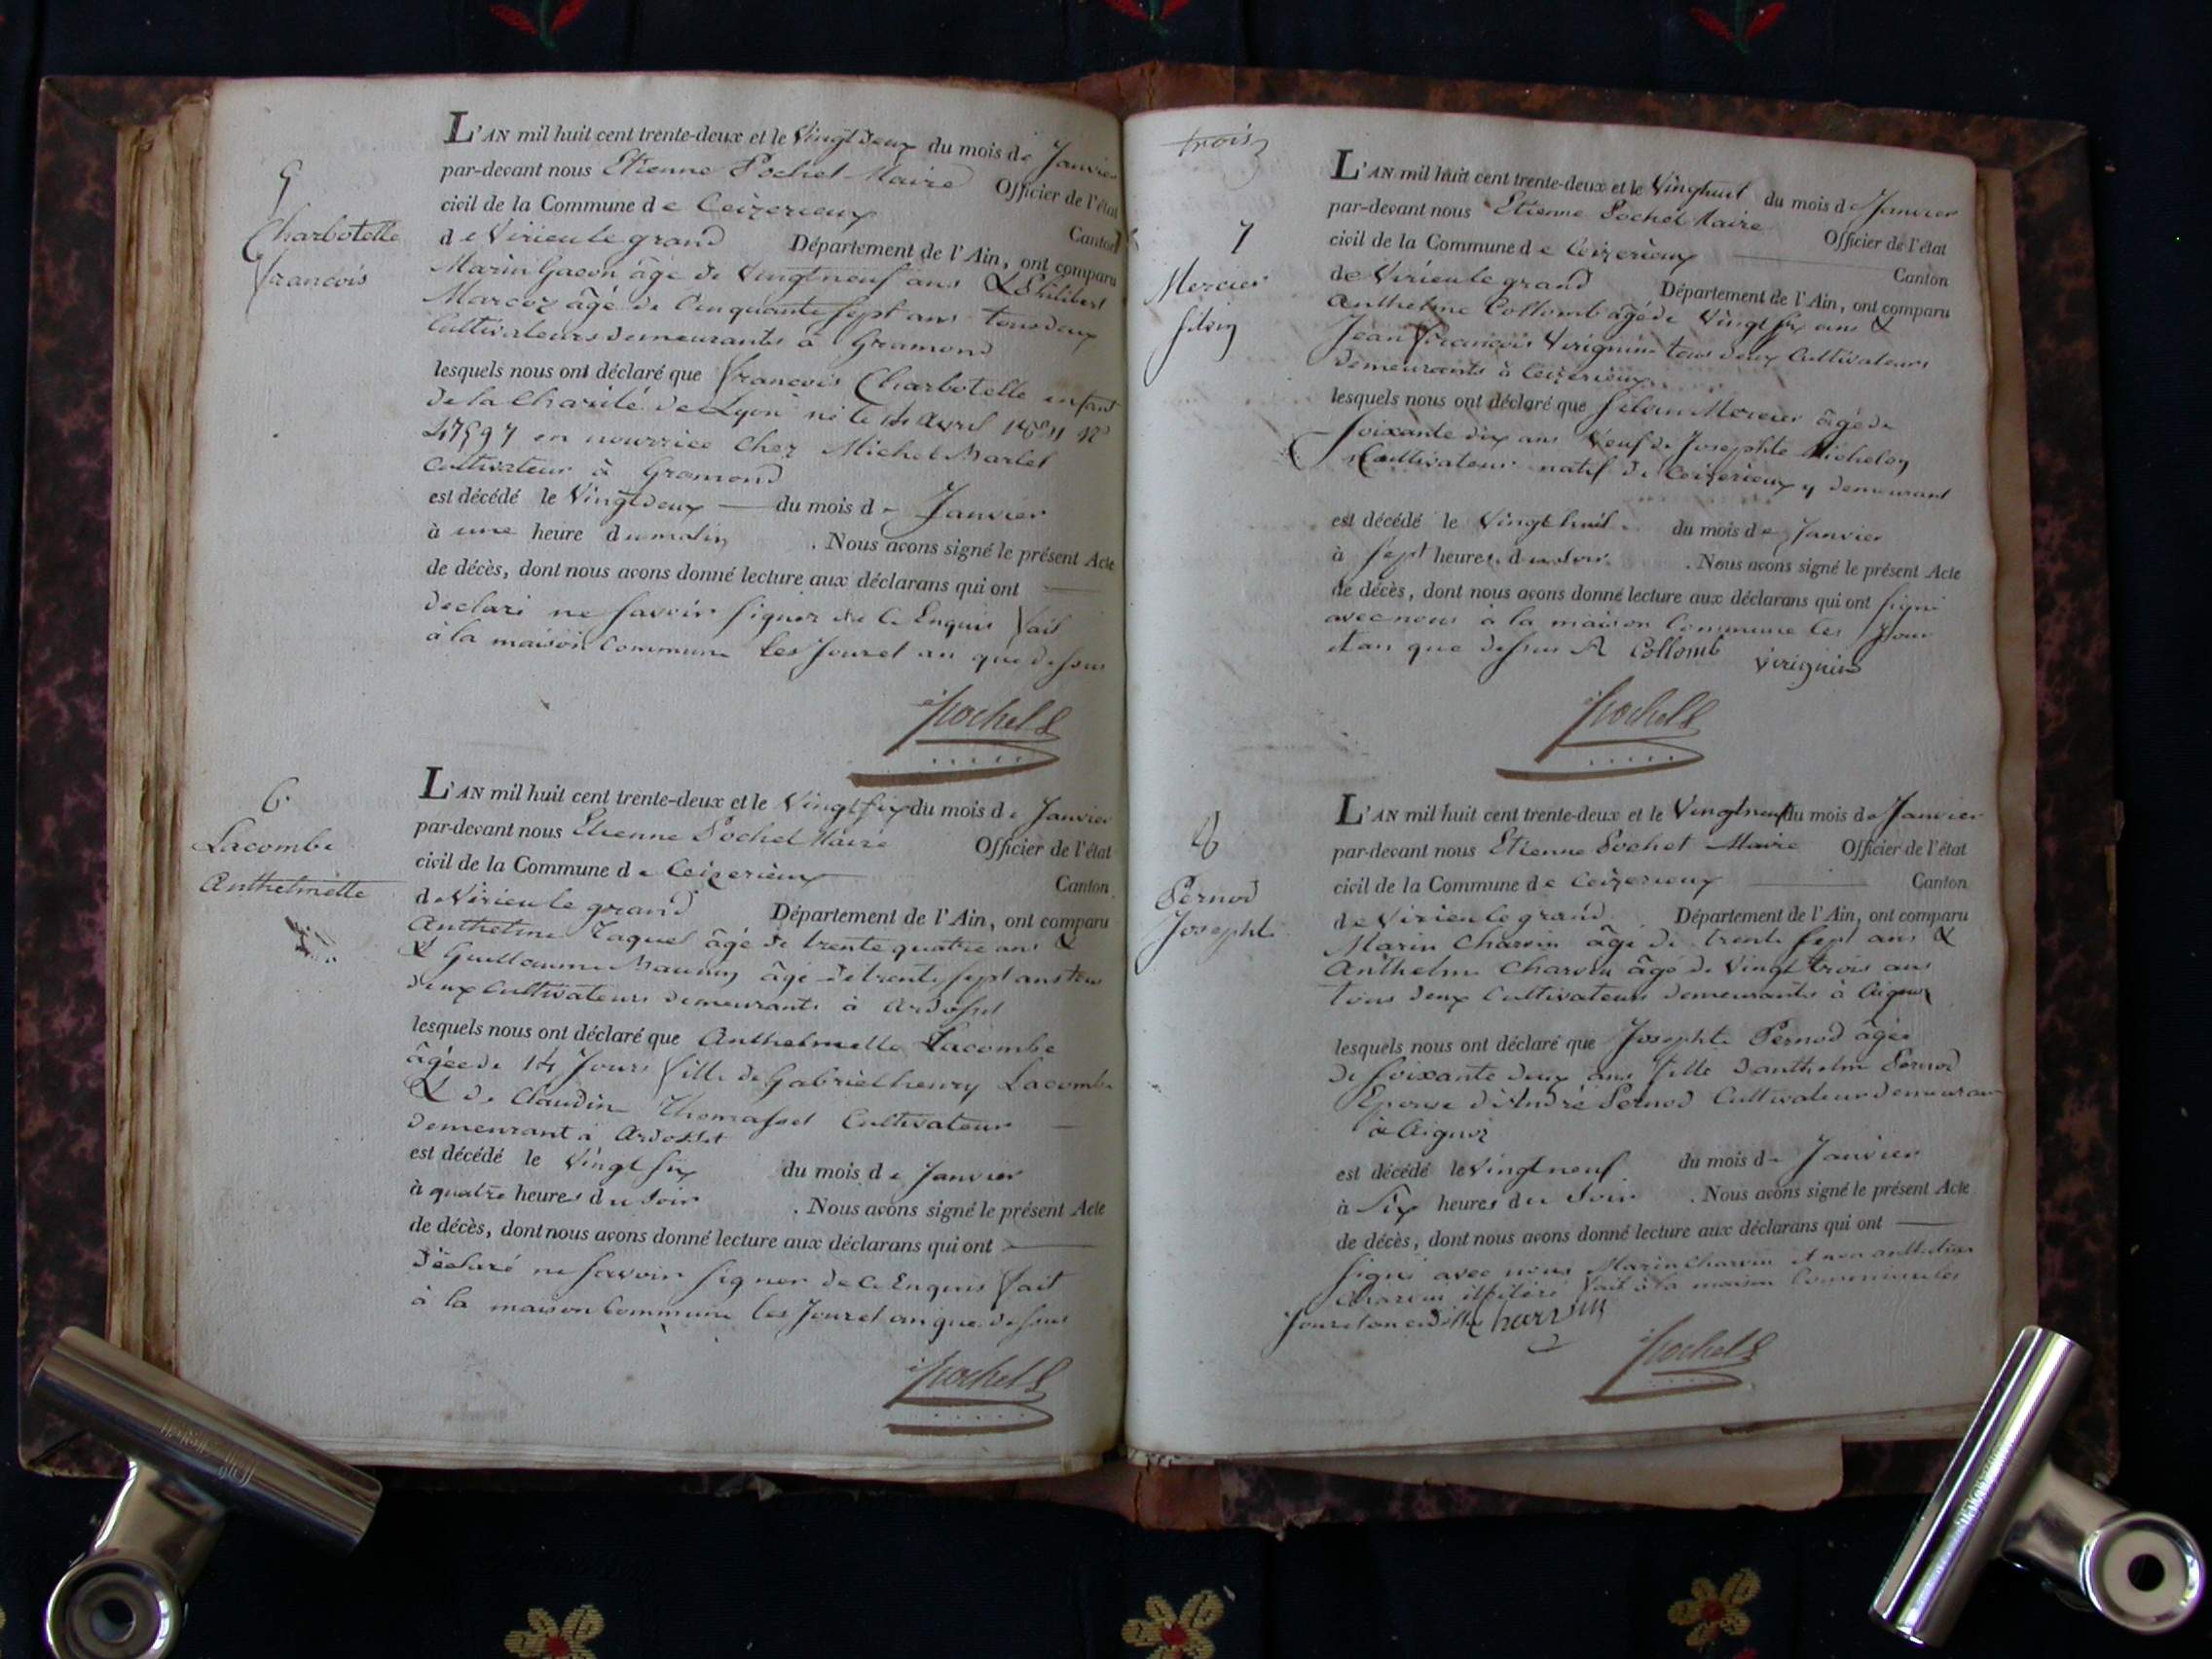 5
Charbotelle
francois
L'AN mil huit cent trente-deux et le Vingtdeux du mois de Janvier
par-devant nous Etienne Pochet Maire Officier de l'état
civil de la Commune de Ceizerieux Canton
de Virieu le grand Département de l'Ain, ont comparu
Marin Gacon âgé de Vingtneuf ans & Philibert
Marcoz âgé de Cinquante sept ans tous deux
Cultivateurs demeurants à Gramond
lesquels nous ont déclaré que francois Charbotelle enfant
de la Charité de Lyon né le Avril N°
47597 en nourrice Chez Michel Martel
Cultivateur à Gramond
est décédé le Vingtdeux du mois de Janvier
à une heure du matin . Nous avons signé le présent Acte
de décès, dont nous avons donné lecture aux déclarans qui ont
declaré ne savoir signer de ce Enquis fait
à la maison Commune les Jour et an que dessus
Pochet
6
Lacombe
Anthelmette
L'AN mil huit cent trente-deux et le Vingt six du mois de Janvier
par-devant nous Etienne Pochet Maire Officier de l'état
civil de la Commune de Ceizerieux Canton
de Virieu le grand Département de l'Ain, ont comparu
Anthelme Jaquet âgé de trente quatre ans &
& Guillaume âgé de trente sept ans tous
deux Cultivateurs demeurants à Ardosset
lesquels nous ont déclaré que Anthelmette Lacombe
âgée de 14 Jours fille de Gabriel henry Lacombe
& de Claudine Thomasset Cultivateur
demeurant à Ardosset
est décédé le Vingt six du mois de Janvier
à quatre heures du soir . Nous avons signé le présent Acte
de décès, dont nous avons donné lecture aux déclarans qui ont
Déclaré ne savoir signer de ce Enquis fait
à la maison Commune les Jour et an que dessus
Pochet
trois
7
Mercier
silvin
L'AN mil huit cent trente-deux et le Vingthuit du mois de Janvier
par-devant nous Etienne Pochet Maire Officier de l'état
civil de la Commune de Ceizerieux Canton
de Virieu le grand Département de l'Ain, ont comparu
Anthelme Collomb âgé de Vingt six ans &
Jean francois Virignin tous deux Cultivateurs
demeurants à Ceizerieux
lesquels nous ont déclaré que silvin Mercier âgé de
soixante dix ans Veuf de Josephte Michelon
Cultivateur natif de Ceizerieux y demeurant
est décédé le Vingt huit du mois de Janvier
à sept heures du soir . Nous avons signé le présent Acte
de décès, dont nous avons donné lecture aux déclarans qui ont signé
avec nous à la maison Commune les Jour
et an que dessus A Collomb Virignin
Pochet
8
Pernod
Josephte
L'AN mil huit cent trente-deux et le Vingtneuf du mois de Janvier
par-devant nous Etienne Pochet Maire Officier de l'état
civil de la Commune de Ceizerieux Canton
de Virieu le grand Département de l'Ain, ont comparu
Marin Charvin âgé de trente sept ans &
Anthelme Charvin âgé de Vingt trois ans
tous deux Cultivateurs demeurants à Aignoz
lesquels nous ont déclaré que Josephte Pernod âgée
de soixante deux ans fille d'anthelme Pernod
Epouse d'André Pernod Cultivateur demeurant
à Aignoz
est décédé le Vingtneuf du mois de Janvier
à Six heures du Soir . Nous avons signé le présent Acte
de décès, dont nous avons donné lecture aux déclarans qui ont
signé avec nous Marin Charvin et non anthelme
Charvin fait à la maison Commune les
Jour et an Charvin
Pochet